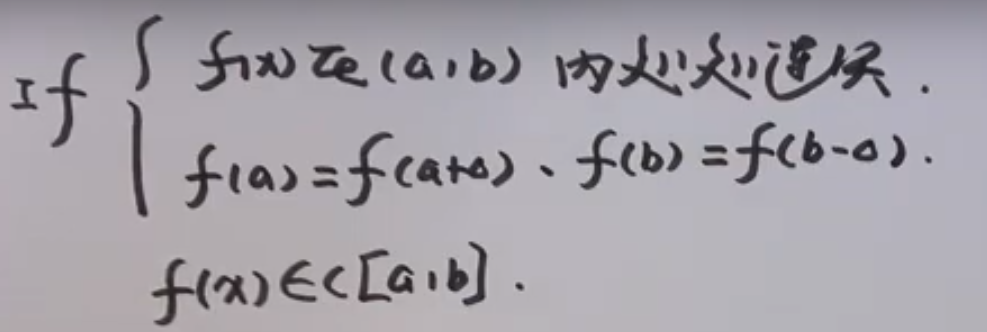 If { f(x)在(a,b)内处处连续.
f(a)=f(a+0)、f(b)=f(b-0).
f(x)∈C[a,b].